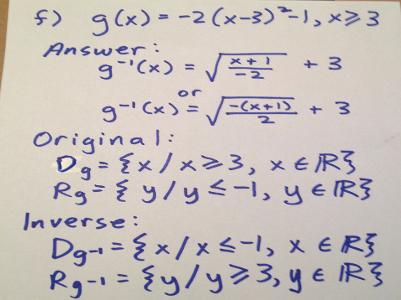 f) g(x) = -2(x-3)²-1, x≥3
Answer:
g⁻¹(x) = √((x+1)/-2) + 3
or
g⁻¹(x) = √(-(x+1)/2) + 3
Original:
Dg = {x/x≥3, x∈ℝ}
Rg = {y/y≤-1, y∈ℝ}
Inverse:
Dg-1 = {x/x≤-1, x∈ℝ}
Rg-1 = {y/y≥3, y∈ℝ}